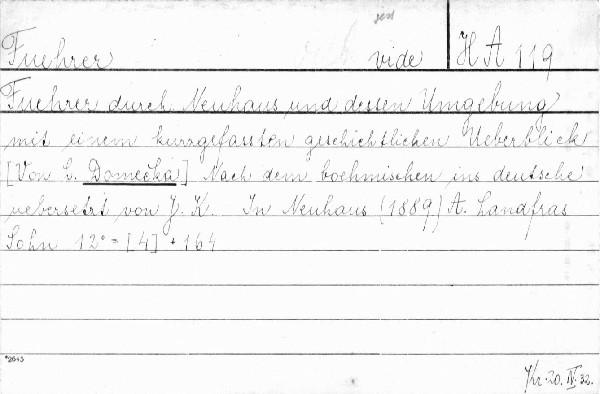 Fuehrer vide HA 119
Fuehrer durch Neuhaus und dessen Umgebung
mit einem kurzgefassten geschichtlichen Ueberblick
[Von L. Domečka] Nach dem boehmischen ins deutsche
uebersetzt von J. K. In Neuhaus (1889) A. Landfras
Sohn 12° = [4] + 164
*2643
Kr. 20. IV. 32.